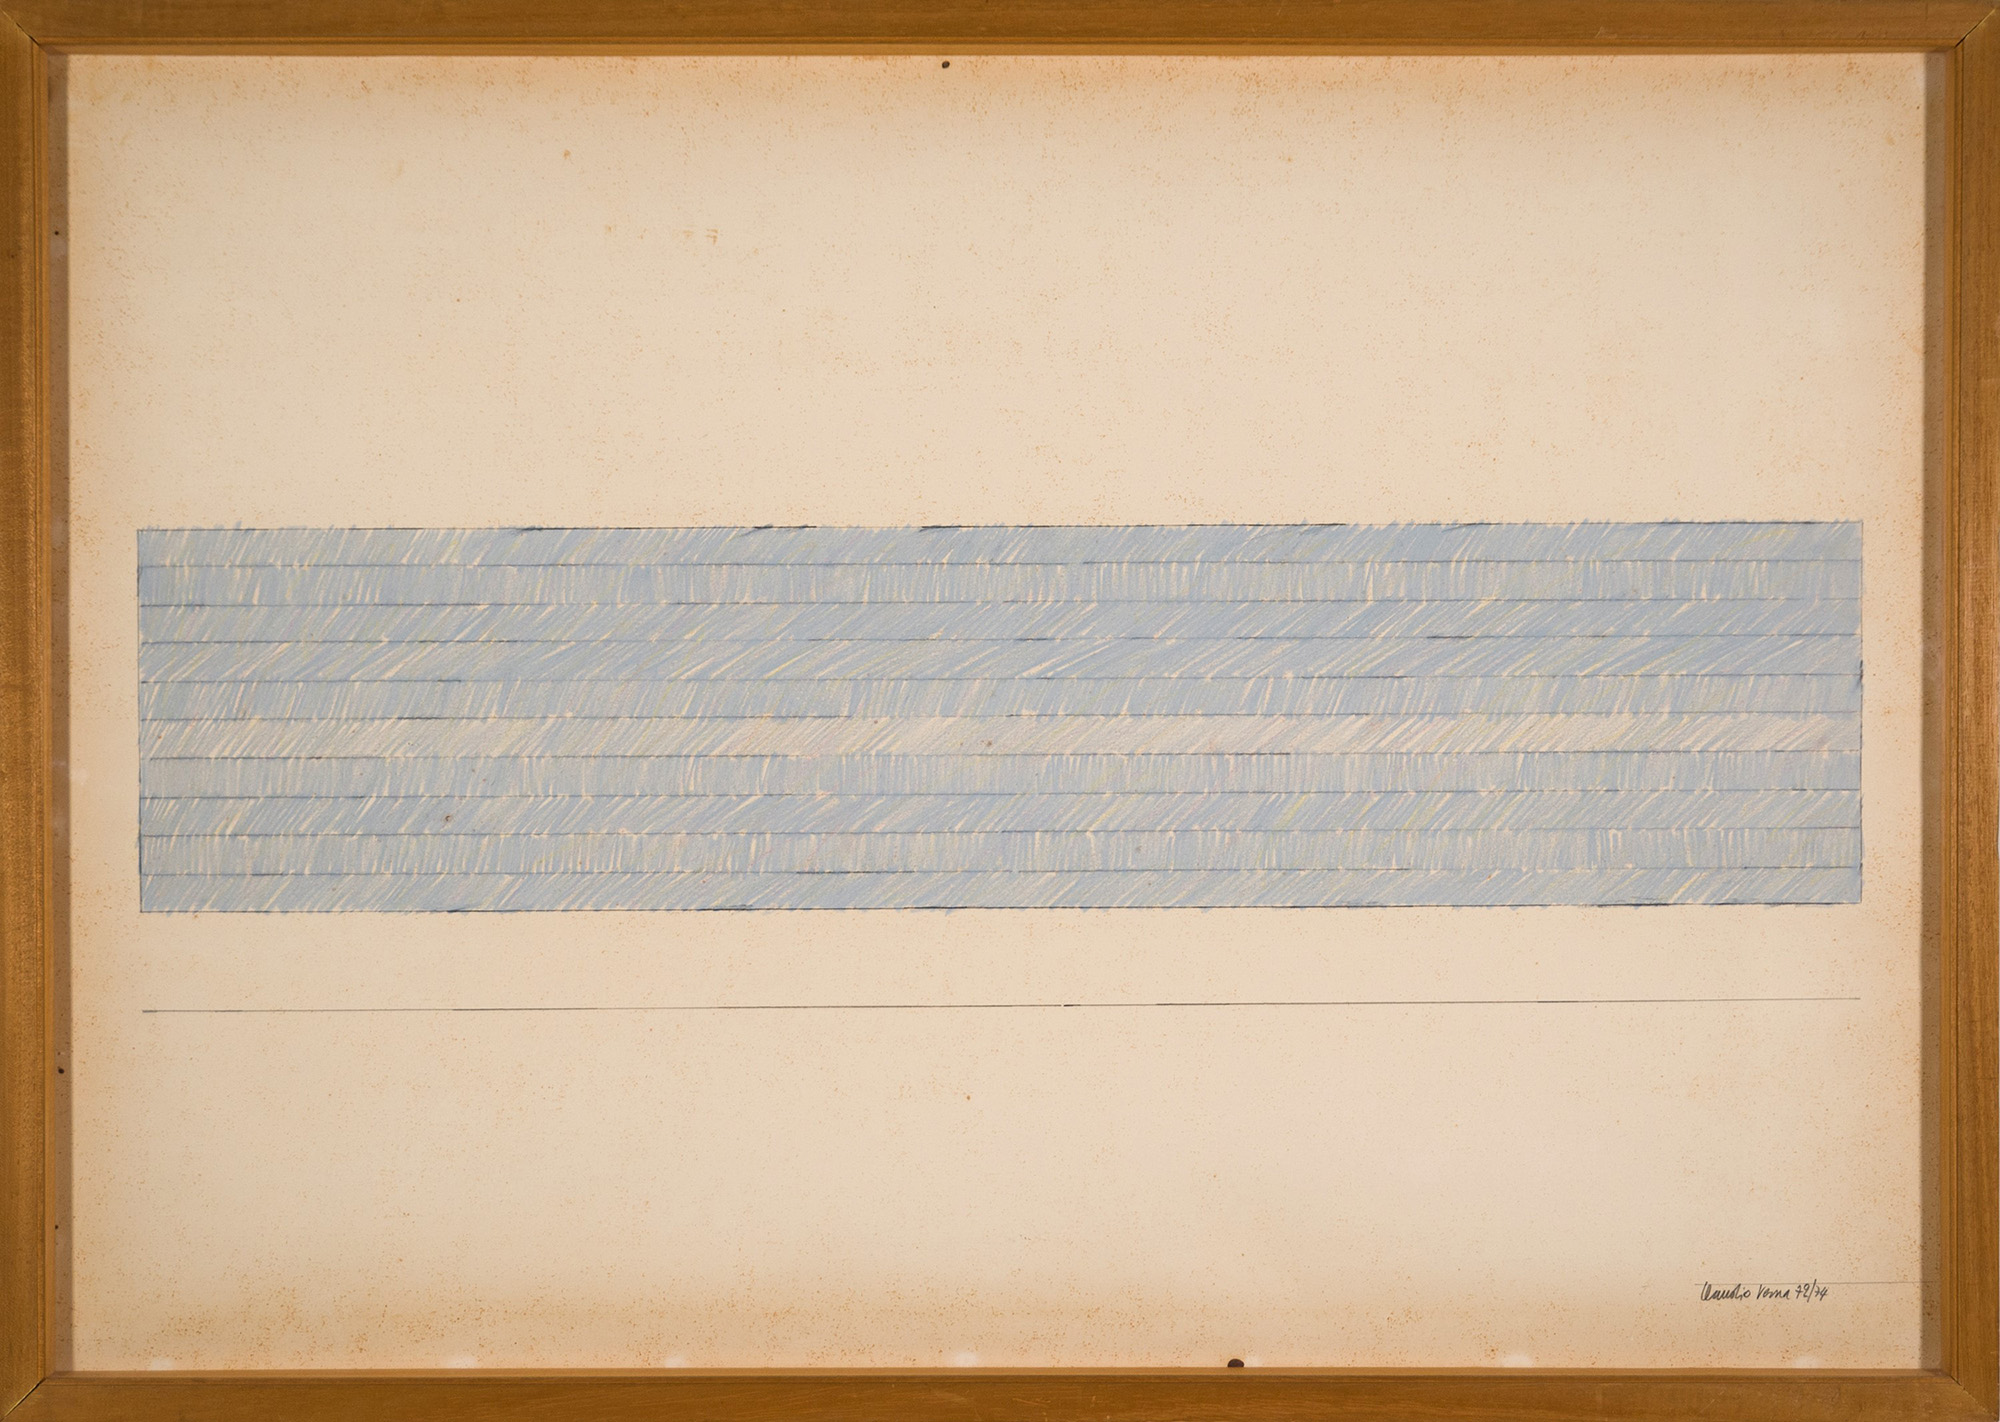 Claudio Verna 72/74